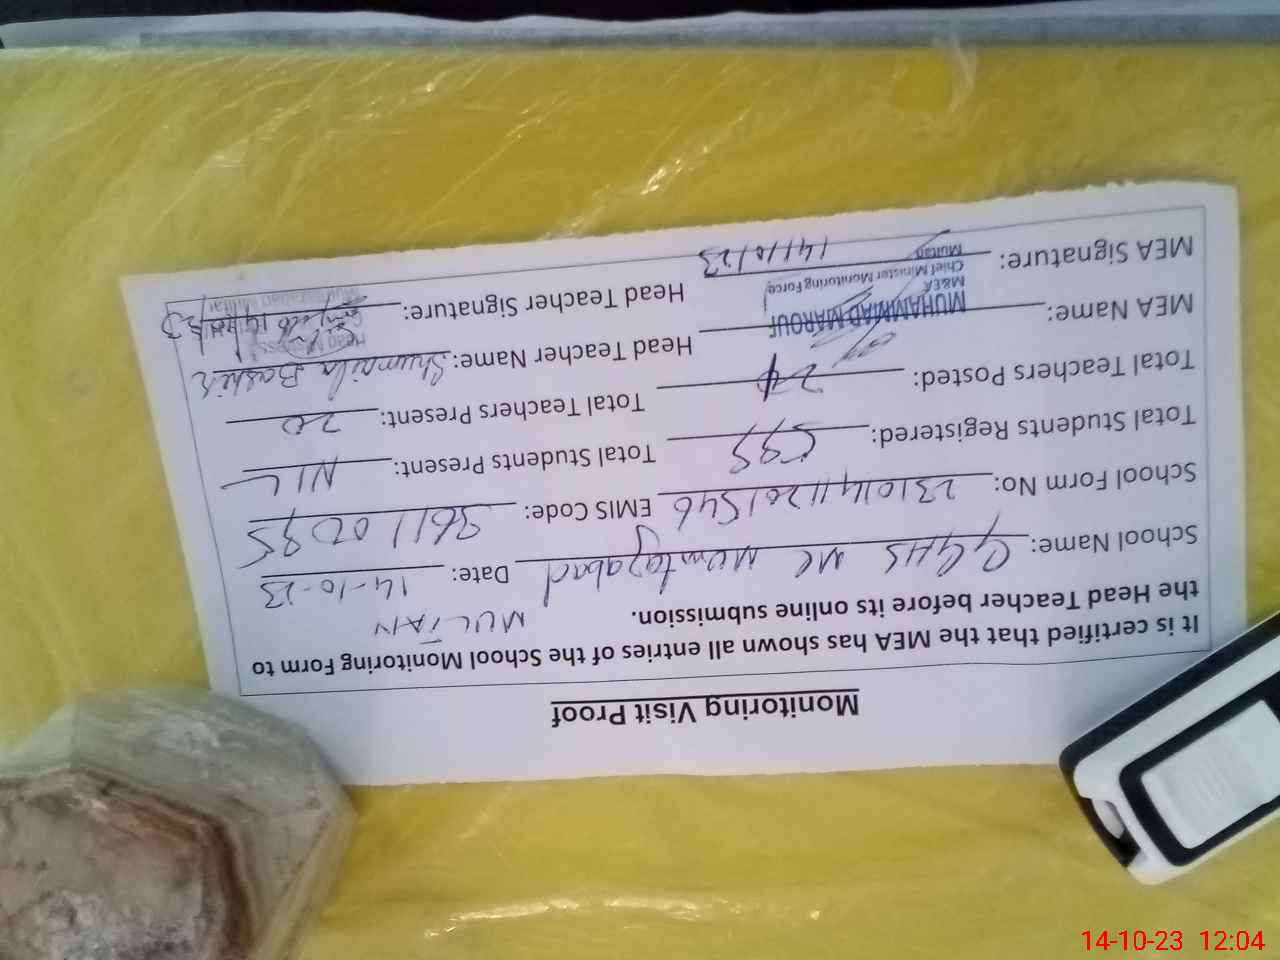 Monitoring Visit Proof
It is certified that the MEA has shown all entries of the School Monitoring Form to
the Head Teacher before its online submission.
MULTAN
School Name: GGHS MC Mumtazabad Date: 14-10-23
School Form No: 23101411201546 EMIS Code:
Total Students Registered: Total Students Present: NIL
Total Teachers Posted: Total Teachers Present: 20
MEA Name: MUHAMMAD MAROUF Head Teacher Name: Shumaila Bashir
M&EA
Chief Minister Monitoring Force
Multan
MEA Signature: 14/10/23 Head Teacher Signature:
Head Mistress
Mumtazabad Multan
14-10-23 12:04